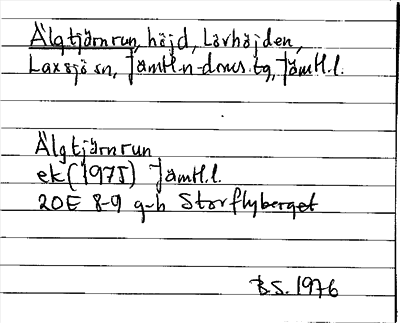 Älgtjärnrun, höjd, Lövhöjden,
Laxsjö sn, Jämtl.n-doms.tg, Jämtl.l.
Älgtjärnrun
ek (1975) Jämtl.l.
20E 8-9 g-h Storflyberget
B.S. 1976